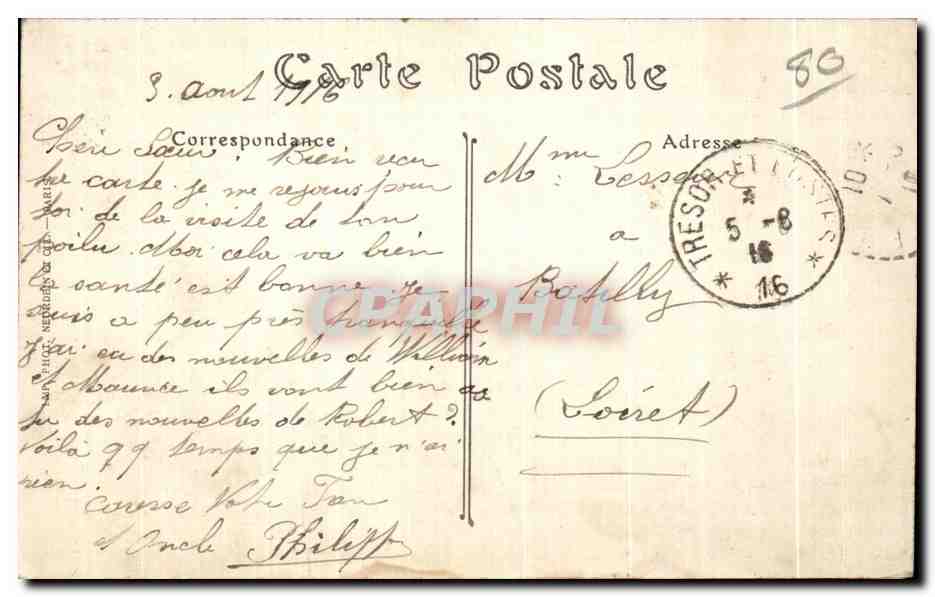 80
Carte Postale
3. août 1916
Correspondance
Chère Sœur. Bien reçu
ta carte je me rejouis pour
toi de la visite de ton
poilu. Moi cela va bien
la santé est bonne. je
suis a peu près tranquille
J'ai eu des nouvelles de William
et Maurice ils vont bien as
tu des nouvelles de Robert?
Voilà qq temps que je n'ai
rien.
caresse Votre
et Oncle Philipp
IMP. PHOT. NEURDEIN ET CIE. — PARIS
Adresse
Mme
a
Batilly
(Loiret)
* TRESOR ET POSTES *
5 -8
16
16
CPAPHIL